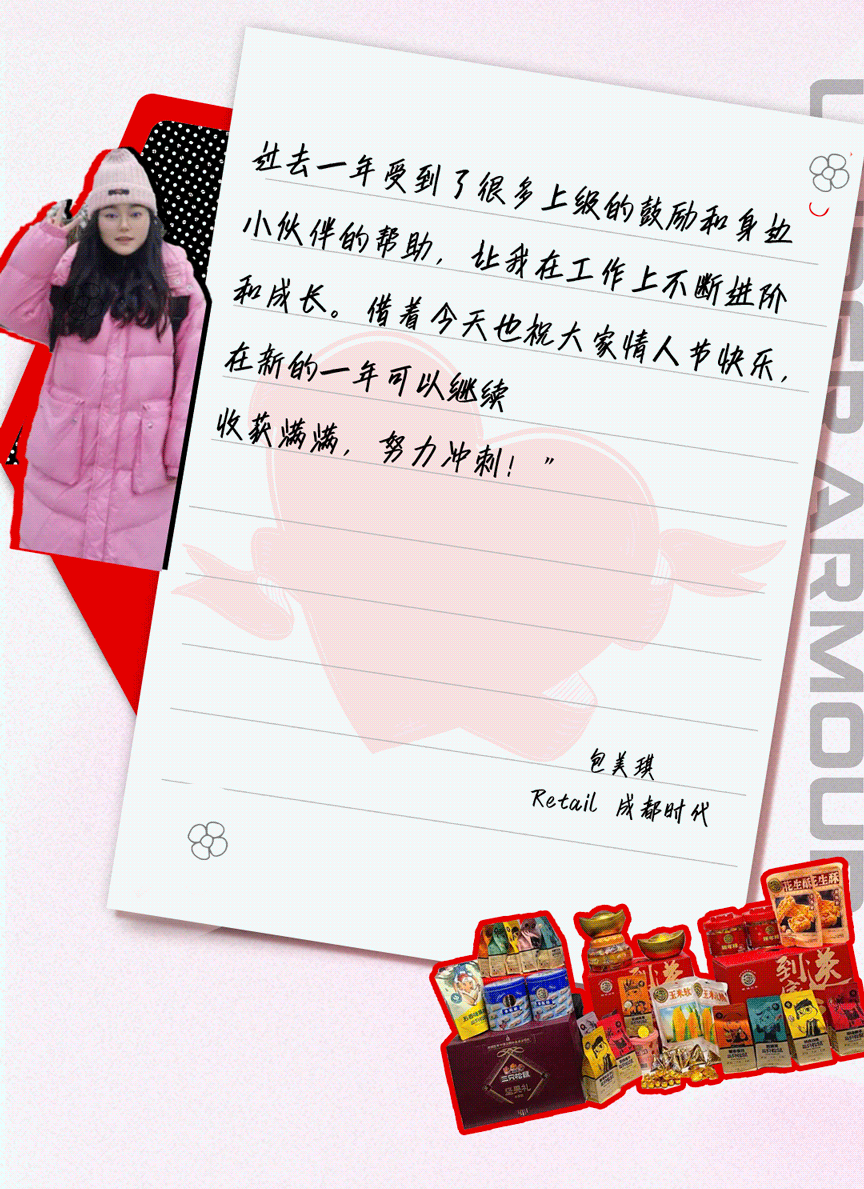 过去一年受到了很多上级的鼓励和身边
小伙伴的帮助，让我在工作上不断进阶
和成长。借着今天也祝大家情人节快乐，
在新的一年可以继续
收获满满，努力冲刺！”
包美琪
Retail 成都时代
UNDER ARMOUR
花生酥
花生酥
到家
送
玉米软糖
三只松鼠
坚果礼